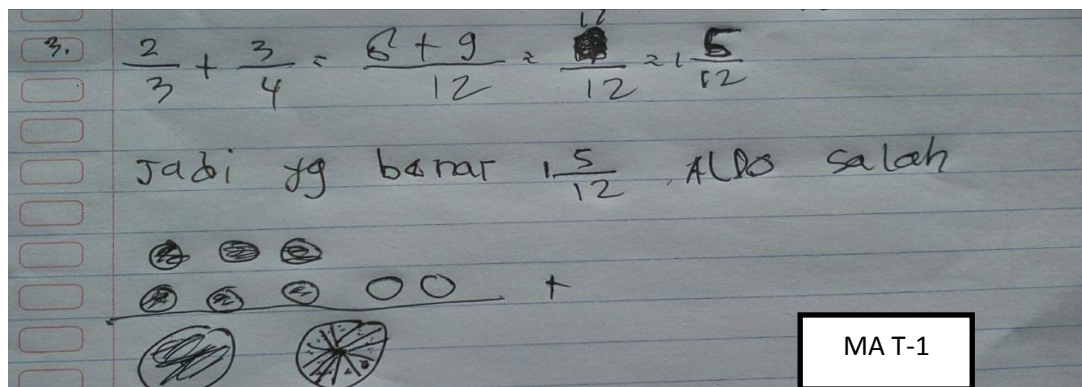 3. 2/3 + 3/4 = 8 + 9/12 = /12 = 1 5/12
Jadi yg benar 1 5/12 ALDO salah
+
MA T-1